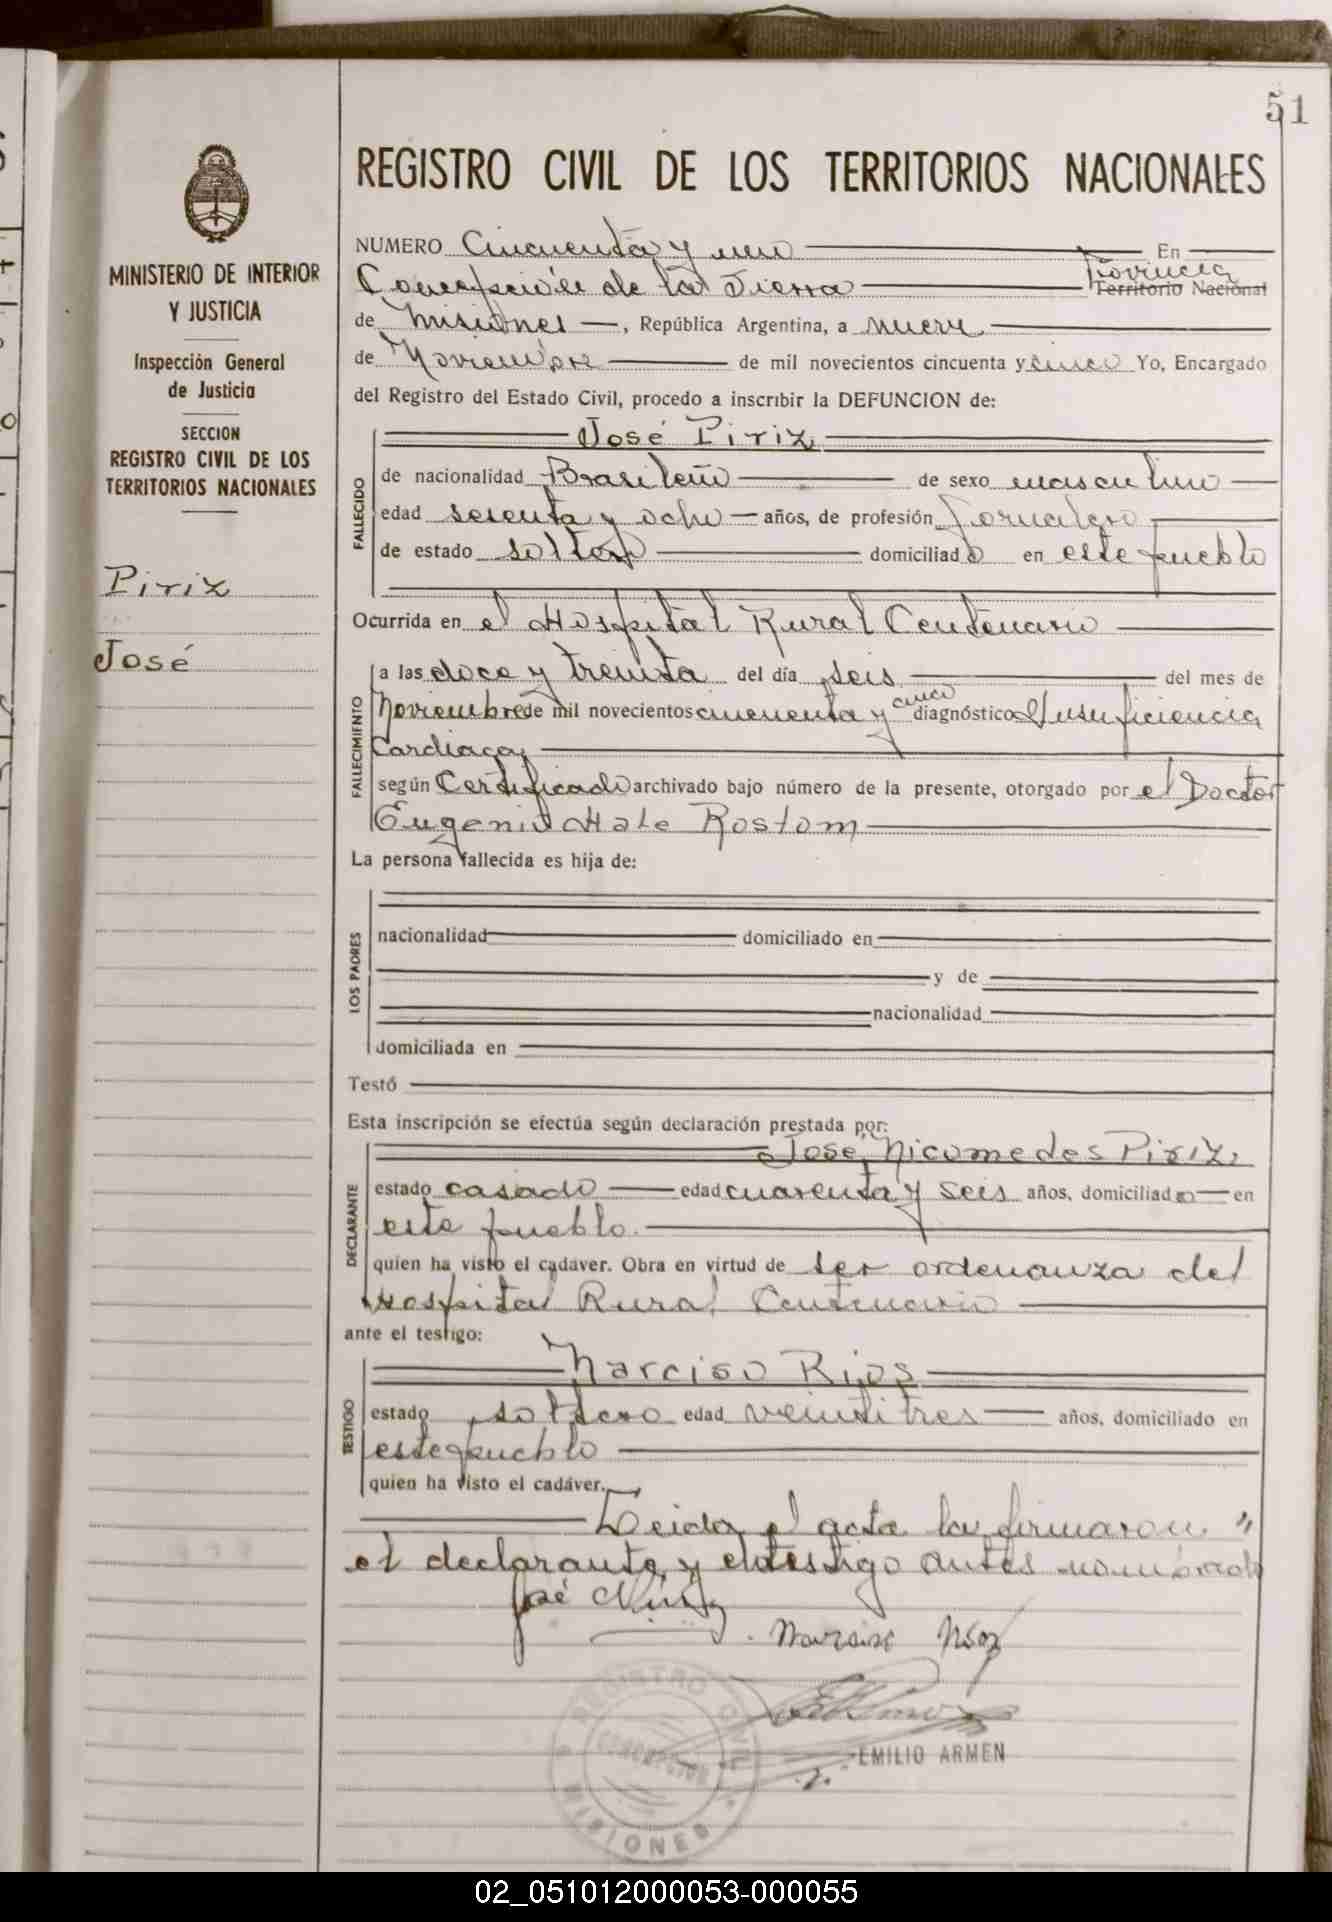 51
REGISTRO CIVIL DE LOS TERRITORIOS NACIONALES
MINISTERIO DE INTERIOR
Y JUSTICIA
Inspección General
de Justicia
SECCION
REGISTRO CIVIL DE LOS
TERRITORIOS NACIONALES
Piriz
José
NUMERO Cincuenta y uno En
Concepción de la Sierra Provincia Territorio Nacional
de Misiones, República Argentina, a nueve
de Noviembre de mil novecientos cincuenta y cinco Yo, Encargado
del Registro del Estado Civil, procedo a inscribir la DEFUNCION de:
FALLECIDO
José Piriz
de nacionalidad Brasileño de sexo masculino
edad sesenta y ocho años, de profesión Jornalero
de estado soltero domiciliado en este pueblo
Ocurrida en el Hospital Rural Centenario
FALLECIMIENTO
a las doce y treinta del día seis del mes de
Noviembre de mil novecientos cincuenta y cinco diagnóstico Insuficiencia
Cardiaca
según Certificado archivado bajo número de la presente, otorgado por el Doctor
Eugenio Hale Rostom
La persona fallecida es hija de:
LOS PADRES
nacionalidad domiciliado en
y de
nacionalidad
domiciliada en
Testó
Esta inscripción se efectúa según declaración prestada por:
DECLARANTE
José Nicomedes Piriz
estado casado edad cuarenta y seis años, domiciliado en
este pueblo.
quien ha visto el cadáver. Obra en virtud de ser ordenanza del
Hospital Rural Centenario
ante el testigo:
TESTIGO
Narciso Rios
estado soltero edad veintitres años, domiciliado en
este pueblo
quien ha visto el cadáver.
Leida el acta la firmaron "
el declarante y el testigo antes nombrado
José
Narciso
REGISTRO CIVIL
CONCEPCION
MISIONES
EMILIO ARMEN
02_051012000053-000055